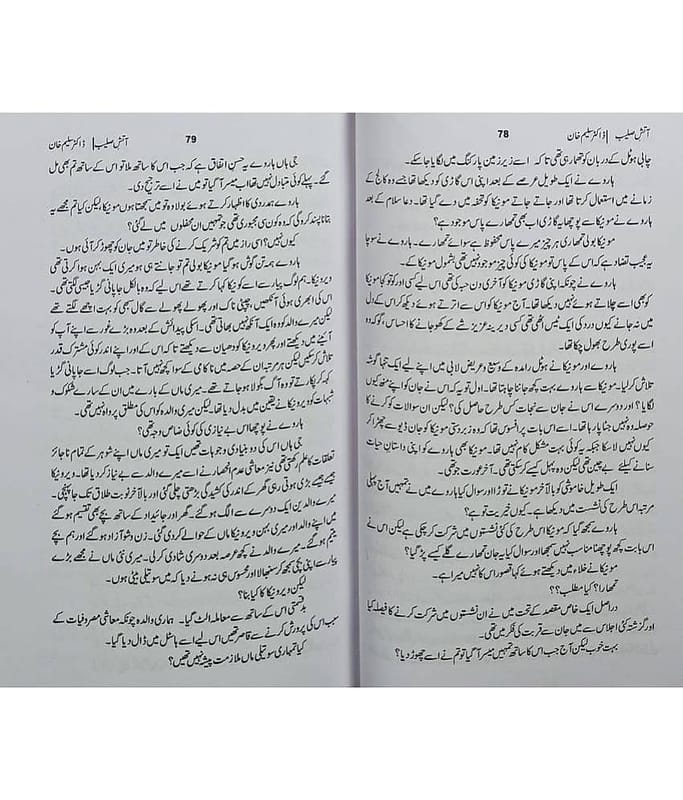 آتش صلیب | ڈاکٹر سلیم خان 78
چابی ہوٹل کے دربان کو تھما رہی تھی تاکہ اسے زیر زمین پارکنگ میں لگایا جا سکے۔
ہاروے نے ایک طویل عرصے کے بعد اپنی اس گاڑی کو دیکھا تھا جسے وہ کالج کے
زمانے میں استعمال کرتا تھا اور جاتے جاتے مونیکا کو تحفہ میں دے گیا تھا۔ دعا سلام کے بعد
ہاروے نے مونیکا سے پوچھا یہ گاڑی اب بھی تمھارے پاس موجود ہے؟
مونیکا بولی تمھاری ہر چیز میرے پاس محفوظ ہے سوائے تمھارے۔ ہاروے نے سوچا
یہ عجیب تضاد ہے کہ اس کے پاس تو مونیکا کی کوئی چیز موجود نہیں تھی بشمول مونیکا کے۔
ہاروے نے چونکہ اپنی گاڑی مونیکا کو آخری دن جب کی تھی اس لیے کسی اور کو تو کجا مونیکا
کو بھی اسے چلاتے ہوئے نہیں دیکھا تھا۔ آج مونیکا کو اس سے اترتے ہوئے دیکھ کر اس کے دل
میں نہ جانے کیوں درد کی ایک ٹیس اٹھی تھی کسی دیرینہ عزیز شے کے کھو جانے کا احساس، گو کہ وہ
اسے پوری طرح بھول چکا تھا۔
ہاروے اور مونیکا نے ہوٹل رامدہ کے وسیع و عریض لابی میں اپنے لیے ایک تنہا گوشہ
تلاش کر لیا۔ مونیکا سے ہاروے بہت کچھ جاننا چاہتا تھا۔ اول تو یہ کہ اس نے جان کو اپنے منھ کیوں
لگایا؟ اور دوسرے اس نے جان سے نجات کس طرح حاصل کی؟ لیکن ان سوالات کو کرنے کا
حوصلہ وہ نہیں جٹا پا رہا تھا۔ اسے اس بات پر افسوس تھا کہ وہ زبردستی مونیکا کو جان ڈیو سے چھڑا کر
کیوں نہیں لا سکا جبکہ یہ کوئی بہت مشکل کام نہیں تھا۔ مونیکا بھی ہاروے کو اپنی داستانِ حیات
سنانے کیلئے بے چین تھی لیکن وہ پہل کیسے کر سکتی تھی۔ آخر عورت جو تھی۔
ایک طویل خاموشی کو بالآخر مونیکا نے توڑا اور سوال کیا ہاروے میں نے تمہیں آج پہلی
مرتبہ اس طرح کی نشست میں دیکھا ہے۔ کیوں خیریت تو ہے؟
ہاروے سمجھ گیا کہ مونیکا اس طرح کی کئی نشستوں میں شرکت کر چکی ہے لیکن اس نے
اس بابت کچھ پوچھنا مناسب نہیں سمجھا اور سوال کیا یہ جان تمھارے گلے کیسے پڑ گیا؟
مونیکا نے خلاء میں دیکھتے ہوئے کہا قصور اس کا نہیں میرا ہے۔
تمھارا؟ کیا مطلب؟؟
دراصل ایک خاص مقصد کے تحت میں نے ان نشستوں میں شرکت کرنے کا فیصلہ کیا
اور گزشتہ کئی اجلاس سے میں جان سے قربت کی فکر میں تھی۔
بہت خوب لیکن آج جب اس کا ساتھ تمہیں میسر آ گیا تو تم نے اسے چھوڑ دیا؟
آتش صلیب | ڈاکٹر سلیم خان 79
جی ہاں ہاروے یہ حسنِ اتفاق ہے کہ جب اس کا ساتھ ملا تو اس کے ساتھ تم بھی مل
گئے۔ پہلے کوئی متبادل نہیں تھا اب میسر آ گیا تو میں نے اسے ترجیح دی۔
ہاروے ہمدردی کا اظہار کرتے ہوئے بولا وہ تو میں سمجھتا ہوں مونیکا، لیکن کیا تم مجھے یہ
بتانا پسند کرو گی کہ وہ کون سی مجبوری تھی جو تمہیں ان محفلوں میں لے گئی؟
کیوں نہیں؟ اسی راز میں تم کو شریک کرنے کی خاطر تو میں جان کو چھوڑ کر آئی ہوں۔
ہاروے ہمہ تن گوش ہو گیا مونیکا بولی تم تو جانتے ہی ہو میری ایک بہن ہوا کرتی تھی
ویرونیکا۔ ہم لوگ پیار سے اسے گڑیا کہا کرتے تھے اس لیے کہ وہ بالکل جاپانی گڑیا جیسی لگتی تھی۔
اس کی ابھری ہوئی آنکھیں، چپٹی ناک اور پھولے پھولے سے گال بھی کو بہت اچھے لگتے تھے
لیکن میرے والد کو وہ ایک آنکھ نہیں بھاتی تھی۔ اسکی پیدائش کے بعد وہ بڑے غور سے اپنے آپ کو
آئینے میں دیکھتے اور پھر ویرونیکا کو دھیان سے دیکھتے تا کہ اس کے اور اپنے اندر کوئی مشترک قدر
تلاش کر سکیں لیکن ہر مرتبہ ان کے حصہ میں ناکامی کے سوا کچھ نہیں آتا۔ جب لوگ اسے جاپانی گڑیا
کہہ کر پکارتے تو وہ آگ بگولا ہو جاتے تھے۔ میری ماں کے بارے میں ان کے سارے شکوک و
شبہات کو ویرونیکا نے یقین میں بدل دیا تھا۔ لیکن میری والدہ کو اس کی مطلق پرواہ نہیں تھی۔
ہاروے نے پوچھا اس بے نیازی کی کوئی خاص وجہ تھی؟
جی ہاں اس کی دو بنیادی وجوہات تھیں ایک تو میری ماں اپنے شوہر کے تمام ناجائز
تعلقات کا علم رکھتی تھی نیز معاشی عدم انحصار نے اسے میرے والد سے بے نیاز کر دیا تھا۔ ویرونیکا
جیسے جیسے بڑی ہوتی رہی گھر کے اندر کی کشیدگی بڑھتی چلی گئی اور بالآخر نوبت طلاق تک جا پہنچی۔
میرے والدین ایک دوسرے سے الگ ہو گئے۔ گھر اور جائیداد کے ساتھ بچے بھی تقسیم ہو گئے
میں اپنے والد اور میری بہن ویرونیکا ماں کے حوالے کر دی گئی۔ زن و شو آزاد ہو گئے اور ہم بچے
یتیم ہو گئے۔ میرے والد نے کچھ عرصہ بعد دوسری شادی کر لی۔ میری نئی ماں نے مجھے بڑے
پیار سے اپنی بچی سمجھ کر سنبھالا اور محسوس ہی نہ ہونے دیا کہ میں سوتیلی بیٹی ہوں۔
لیکن ویرونیکا کا کیا بنا؟
بدقسمتی اس کے ساتھ سے معاملہ الٹ گیا۔ ہماری والدہ چونکہ معاشی مصروفیات کے
سبب اس کی پرورش کرنے سے قاصر تھیں اس لیے اسے ہاسٹل میں ڈال دیا گیا۔
کیا تمہاری سوتیلی ماں ملازمت پیشہ نہیں تھیں؟